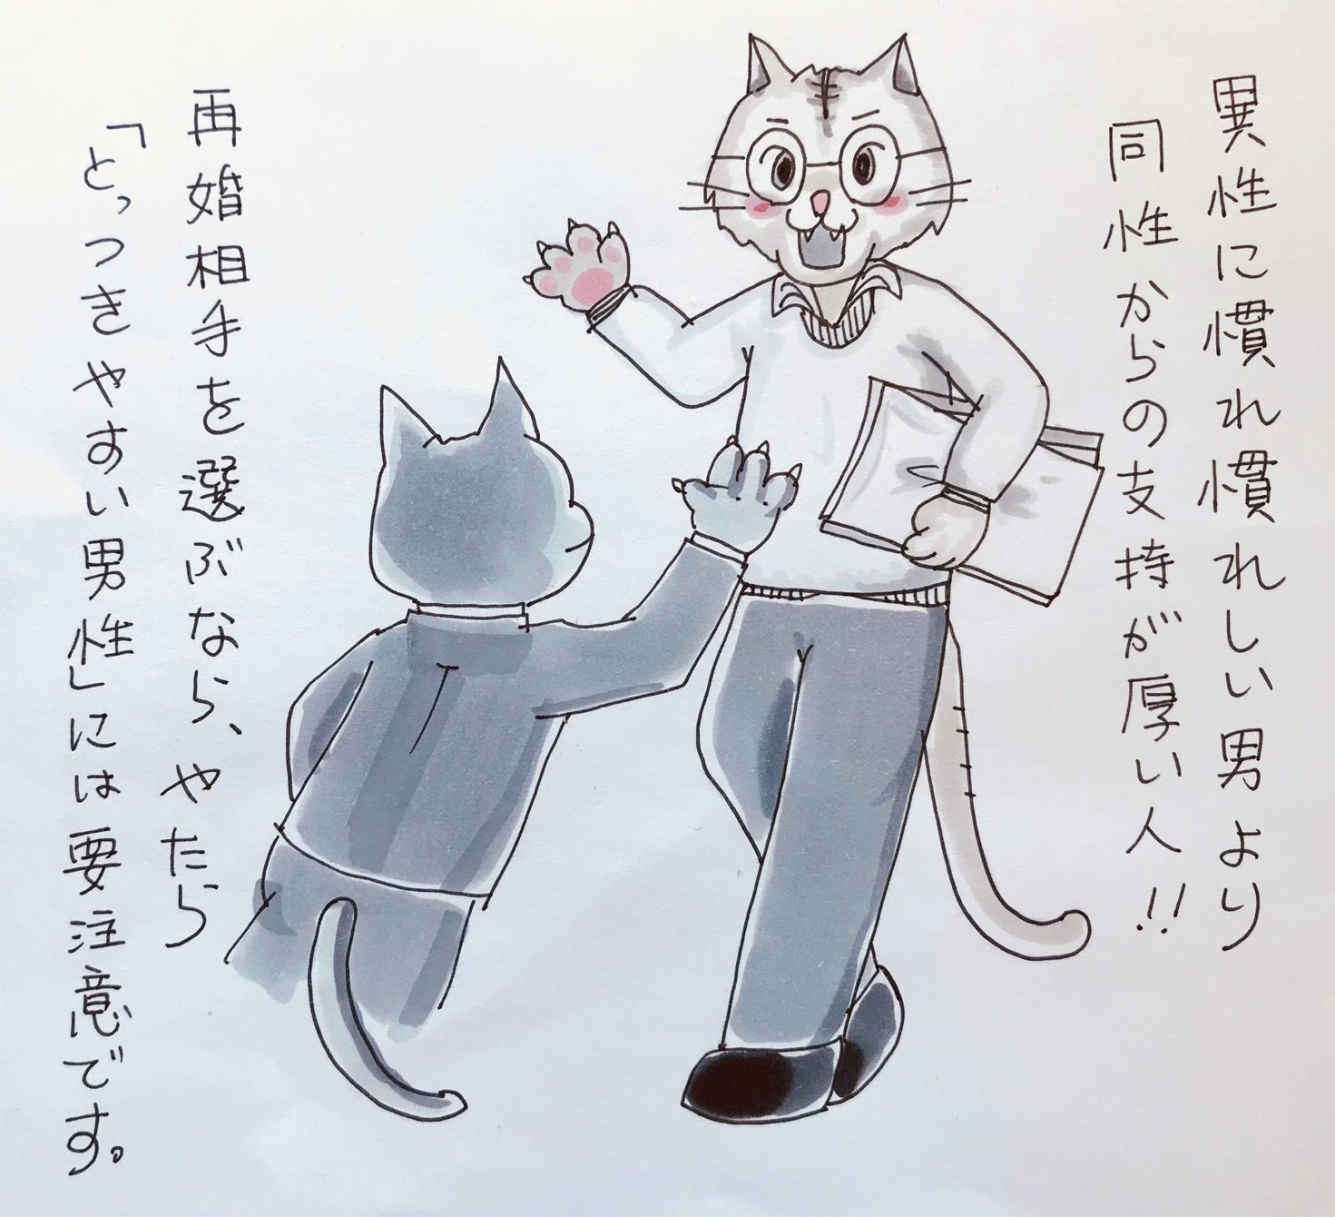 異性に慣れ慣れしい男より
同性からの支持が厚い人!!
再婚相手を選ぶなら、やたら
「とっつきやすい男性」には要注意です。